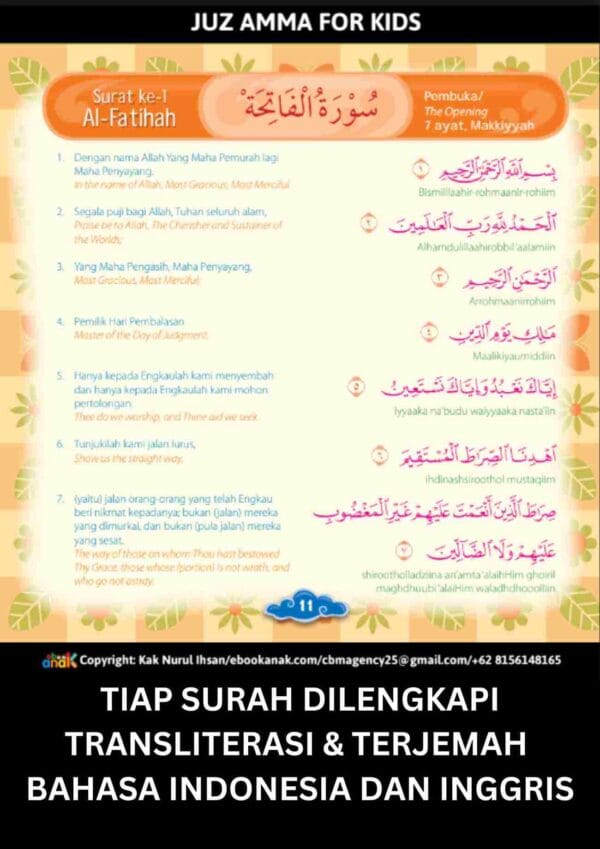 JUZ AMMA FOR KIDS
Surat ke-1
Al-Fatihah
سُوْرَةُ الْفَاتِحَةِ
Pembuka/
The Opening
7 ayat, Makkiyyah
1. Dengan nama Allah Yang Maha Pemurah lagi
Maha Penyayang.
In the name of Allah, Most Gracious, Most Merciful
بِسْمِ اللّٰهِ الرَّحْمٰنِ الرَّحِيْمِ ١
Bismillaahir-rohmaanir-rohiim
2. Segala puji bagi Allah, Tuhan seluruh alam,
Praise be to Allah, The Cherisher and Sustainer of
the Worlds;
الْحَمْدُ لِلّٰهِ رَبِّ الْعَالَمِيْنَ ٢
Alhamdulillaahirobbil'aalamiin
3. Yang Maha Pengasih, Maha Penyayang,
Most Gracious, Most Merciful;
الرَّحْمٰنِ الرَّحِيْمِ ٣
Arrohmaanirrohiim
4. Pemilik Hari Pembalasan
Master of the Day of Judgment.
مَالِكِ يَوْمِ الدِّيْنِ ٤
Maalikiyaumiddiin
5. Hanya kepada Engkaulah kami menyembah
dan hanya kepada Engkaulah kami mohon
pertolongan.
Thee do we worship, and Thine aid we seek.
إِيَّاكَ نَعْبُدُ وَإِيَّاكَ نَسْتَعِيْنُ ٥
Iyyaaka na'budu waiyyaaka nasta'iin
6. Tunjukilah kami jalan lurus,
Show us the straight way,
اهْدِنَا الصِّرَاطَ الْمُسْتَقِيْمَ ٦
ihdinashsiroothol mustaqiim
7. (yaitu) jalan orang-orang yang telah Engkau
beri nikmat kepadanya; bukan (jalan) mereka
yang dimurkai, dan bukan (pula jalan) mereka
yang sesat.
The way of those on whom Thou hast bestowed
Thy Grace, those whose (portion) is not wrath, and
who go not astray.
صِرَاطَ الَّذِيْنَ أَنْعَمْتَ عَلَيْهِمْ غَيْرِ الْمَغْضُوْبِ
عَلَيْهِمْ وَلَا الضَّالِّيْنَ ٧
shirootholladziina an'amta 'alaihHim ghoiril
maghdhuubi 'alaiHim waladhdhooolliin
11
anak Copyright: Kak Nurul Ihsan/ebookanak.com/cbmagency25@gmail.com/+62 8156148165
TIAP SURAH DILENGKAPI
TRANSLITERASI & TERJEMAH
BAHASA INDONESIA DAN INGGRIS